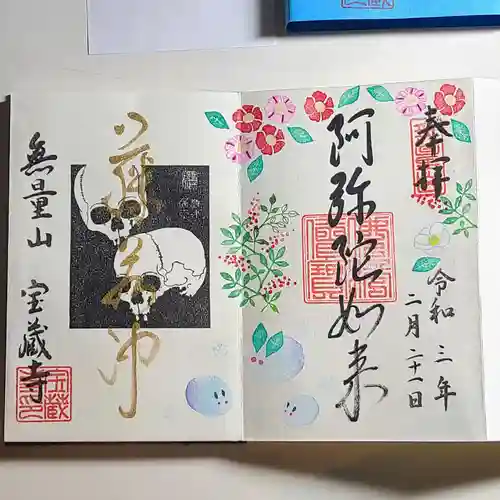 奉拝
令和三年
二月二十一日
阿弥陀如来
若冲
無量山
宝蔵寺